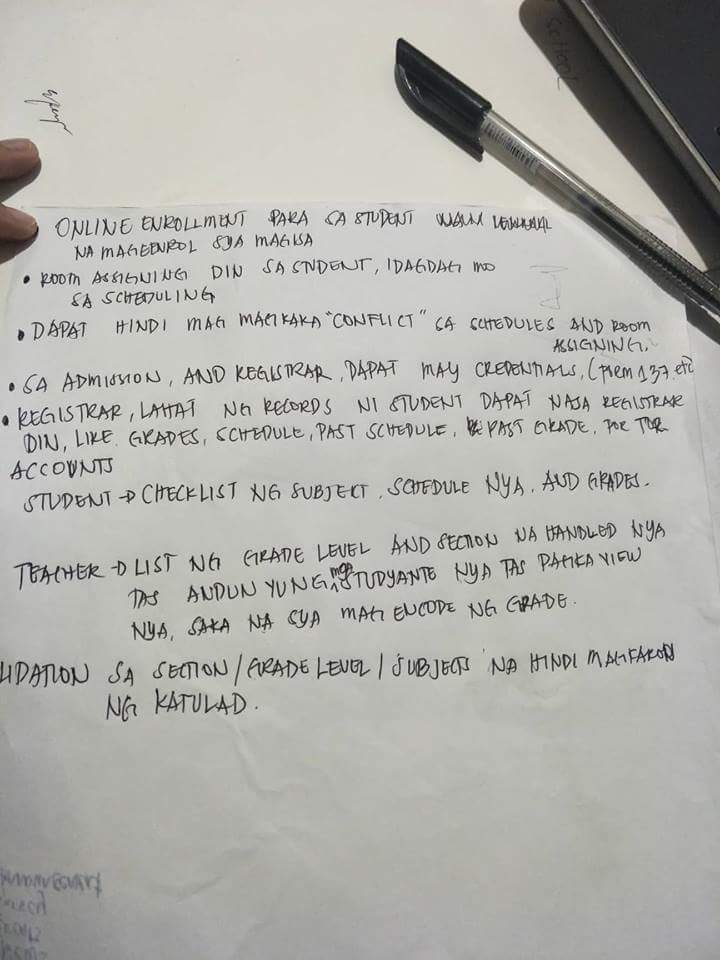 SCHOOL
ONLINE ENROLLMENT PARA SA STUDENT
NA MAGEENROL SYA MAGISA
• ROOM ASSIGNING DIN SA STUDENT, IDAGDAG MO
SA SCHEDULING
• DAPAT HINDI MAG MAGKAKA "CONFLICT" SA SCHEDULES AND ROOM
ASSIGNING.
• SA ADMISSION, AND REGISTRAR, DAPAT MAY CREDENTIALS, (FORM 137, etc
• REGISTRAR, LAHAT NG RECORDS NI STUDENT DAPAT NASA REGISTRAR
DIN, LIKE GRADES, SCHEDULE, PAST SCHEDULE, PAST GRADE, FOR TOR
ACCOUNTS
STUDENT → CHECKLIST NG SUBJECT, SCHEDULE NYA, AND GRADES.
TEACHER → LIST NG GRADE LEVEL AND SECTION NA HANDLED NYA
TAS ANDUN YUNG mga STUDYANTE NYA TAS PAGKA VIEW
NYA, SAKA NA SYA MAG ENCODE NG GRADE.
LIDATION SA SECTION / GRADE LEVEL / SUBJECTS NA HINDI MAGKAROON
NG KATULAD.